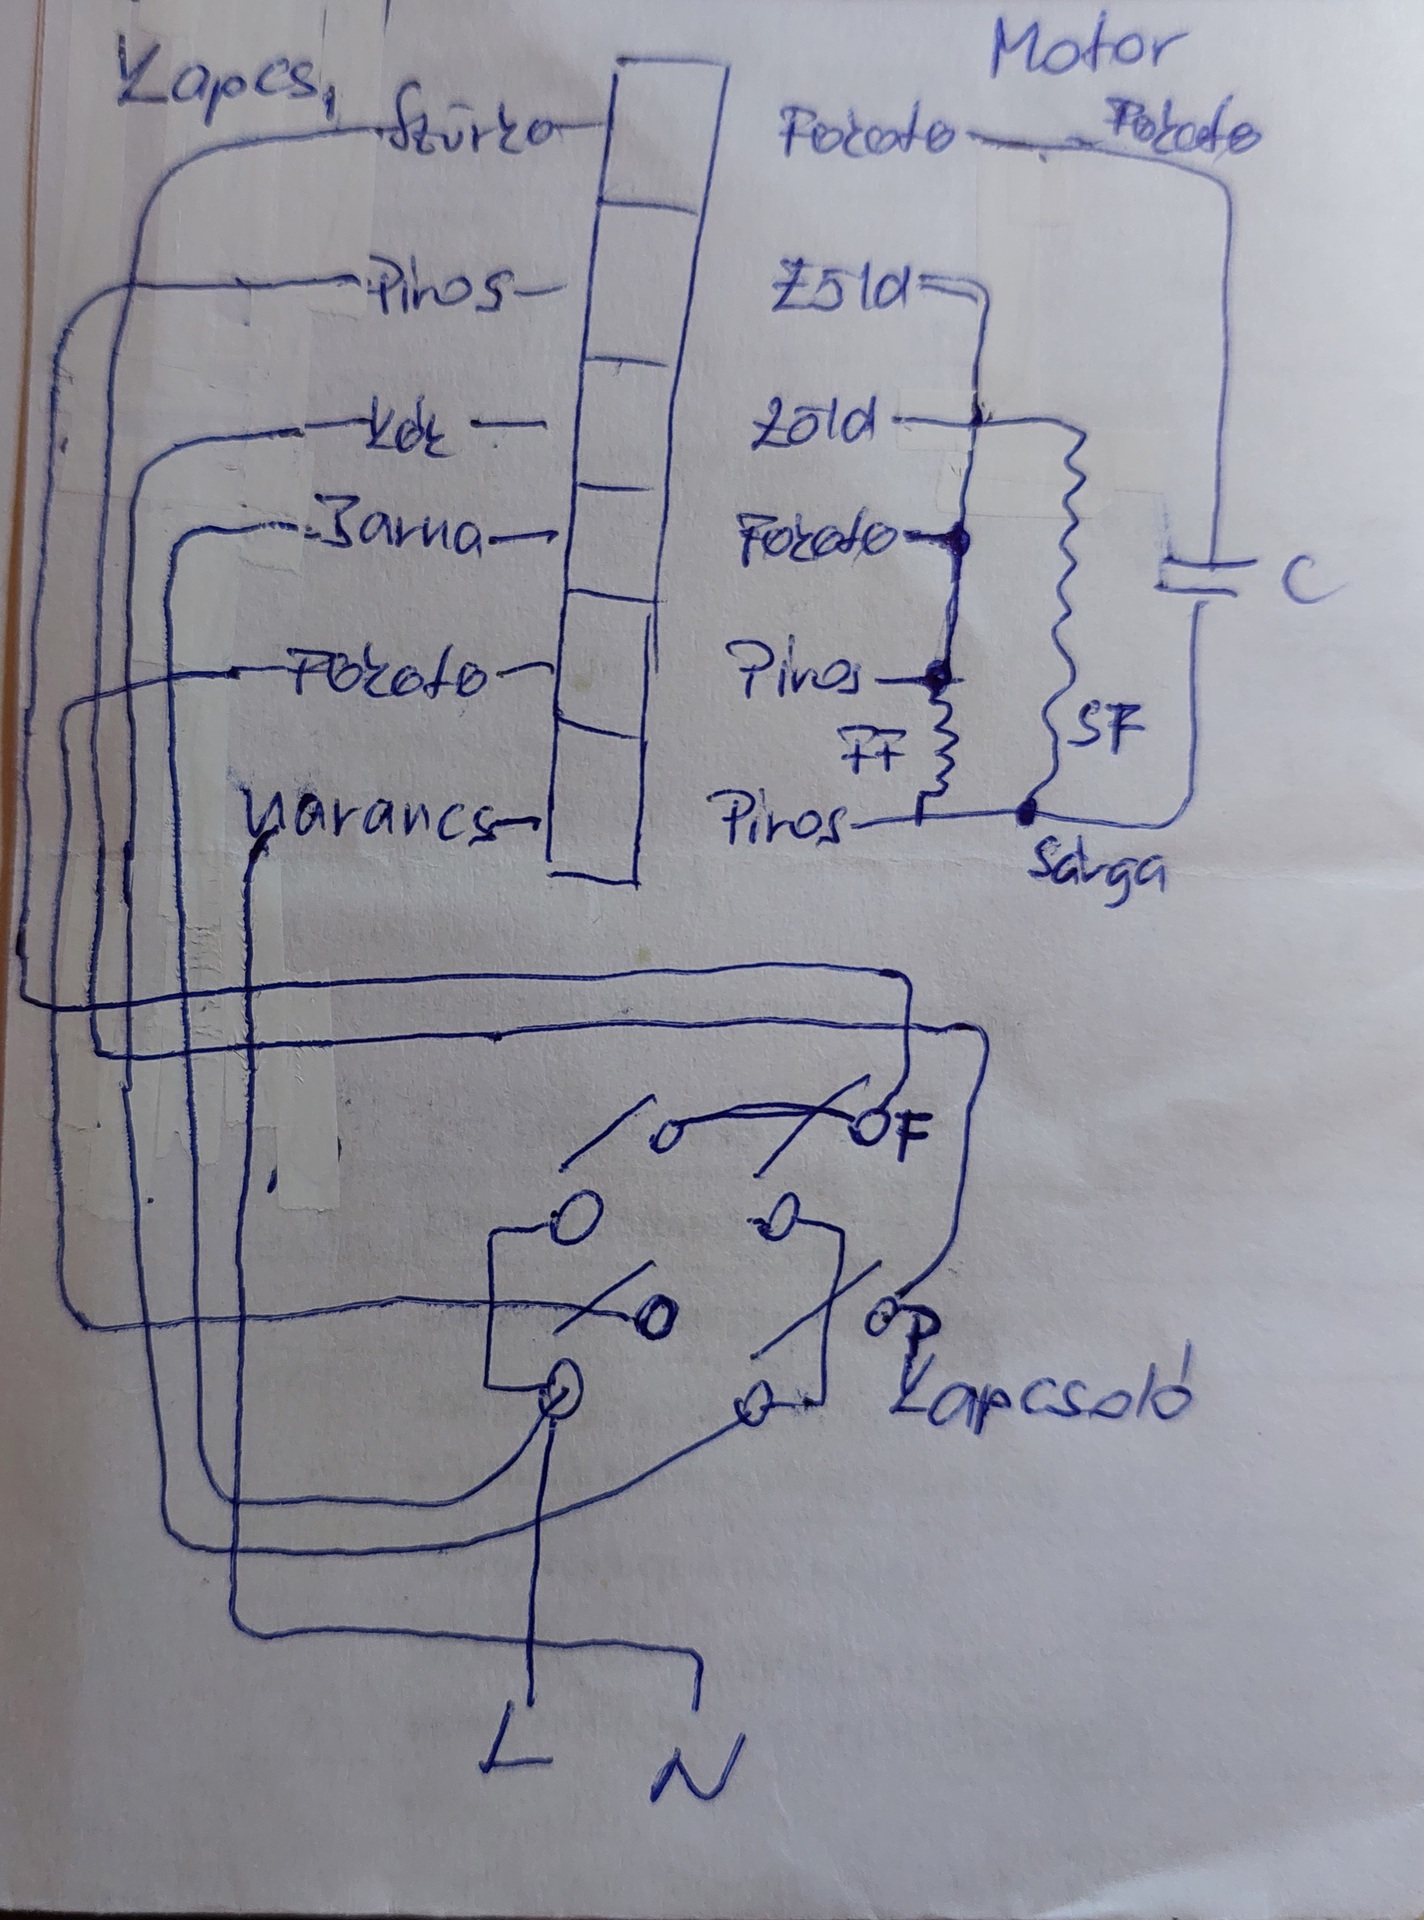 Kapcs,
Motor
Szürke
Fekete
Fekete
Piros
Zöld
Kék
Zöld
Barna
Fekete
Fekete
Piros
FF
SF
C
Narancs
Piros
Sárga
F
P
Kapcsoló
L
N